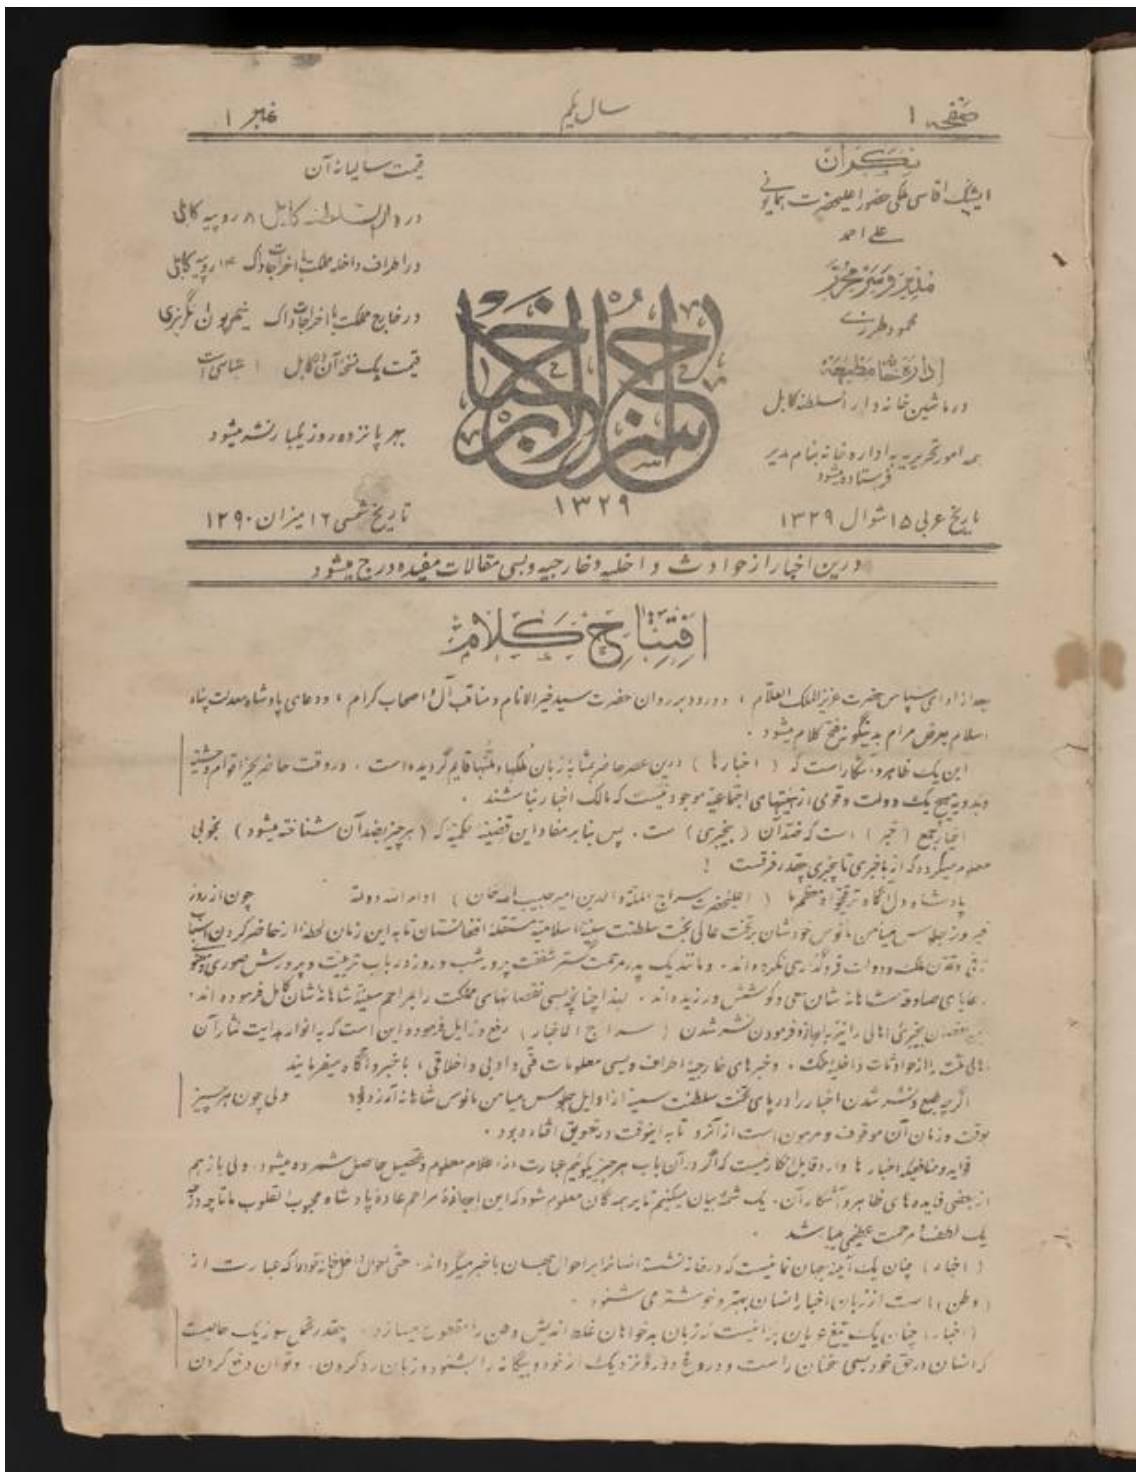 صفحه ۱
سال یکم
نمبر ۱
نگران
ایشیک اقاسی ملکی حضور اعلیحضرت همایونی
علی احمد
مدیر و سر محرر
محمود طرزی
اداره خانه و مطبعه
در ماشین خانه دارالسلطنه کابل
همه امور تحریریه به اداره خانه بنام مدیر
فرستاده میشود
تاریخ عربی ۱۵ شوال ۱۳۲۹
سراج الاخبار
۱۳۲۹
قیمت سالیانه آن
در دارالسلطنه کابل ۸ روپیه کابلی
در اطراف داخله مملکت با اخراجات داک روپیه کابلی
در خارج مملکت با اخراجات داک نیم پون انگریزی
قیمت یک نسخه آن در کابل ۱ عباسی است
بهر پانزده روز یکبار نشر میشود
تاریخ شمسی ۱۶ میزان ۱۲۹۰
درین اخبار از حوادث داخلیه و خارجیه و بسی مقالات مفیده درج میشود
افتتاح کلام
بعد از ادای سپاس حضرت عزیز الملک العلام ، و درود بر روان حضرت سید خیر الانام و مناقب آل و اصحاب کرام ، و دعای پادشاه معدلت پناه
اسلام بعرض مرام بدینگونه فتح کلام میشود .
این یک ظاهر و آشکار است که ( اخبارها ) درین عصر حاضر بمثابۀ زبان ملکها و ملتها قایم گردیده است . در وقت حاضر بجز اقوام وحشیه
و بدویه هیچ یک دولت و قومی از هیئتهای اجتماعیه موجود نیست که مالک اخبار نباشند .
اخبار جمع ( خبر ) است که ضد آن ( بیخبری ) ست . پس بنابر مفاد این قضیه حکمیه که ( هر چیز بضد آن شناخته میشود ) بخوبی
معلوم میگردد که از باخبری تا بیخبری چقدر فرقست !
پادشاه دل آگاه ترقیخواه معظم ما ( اعلیحضرت سراج الملة والدین امیر حبیب الله خان ) ادام الله دولته چون از روز
فیروز جلوس میامن مانوس خودشان بر تخت عالی بخت سلطنت سنیه اسلامیه مستقله افغانستان تا به این زمان لحظه از حاضر کردن اسباب
ترقی و تمدن ملک و دولت فروگذاری نکرده اند . و مانند یک پدر مرحمت گستر شفقت پرور شب و روز در باب تربیت و پرورش صوری و معنوی
رعایای صادقه شاهانه شان سعی و کوشش ورزیده اند . لهذا چنانچه بسی نقصانهای مملکت را بمراحم سنیه شاهانه شان کامل فرموده اند .
نقصان بیخبری اهالی را نیز به اجازه فرمودن نشر شدن ( سراج الاخبار ) رفع و زایل فرموده این است که به انوار هدایت نثار آن
اهالی ملت را از حوادثات داخلیه ملک ، و خبرهای خارجیه اطراف و بسی معلومات فنی و ادبی و اخلاقی ، باخبر و آگاه میفرمایند
اگرچه طبع و نشر شدن اخبار را در پای تخت سلطنت سنیه از اوایل جلوس میامن مانوس شاهانه آرزو ولی چون هر چیز
بوقت و زمان آن موقوف و مرهون است از آنرو تا به اینوقت در تعویق افتاده بود .
فواید و منافعیکه اخبارها دارد قابل انکار نیست که اگر در آن باب هر چیز بگوئیم عبارت از اعلام معلوم و تحصیل حاصل شمرده میشود . ولی باز هم
از بعضی فایده های ظاهر و آشکار آن ، یک شمه بیان میکنیم تا بر همه گان معلوم شود که این اجازۀ مراحم عادۀ پادشاه محبوب القلوب ما تا چه درجه
یک لطف و مرحمت عظیمی میباشد .
( اخبار ) چنان یک آئینه جهان نمائیست که در خانه نشسته انسانرا بر احوال جهان باخبر میگرداند . حتی احوال داخل خانه خود ما که عبارت از
( وطن ) ماست از زبان اخبار انسان بهتر و خوشتر می شنود .
( اخبار ) چنان یک تیغ عریان برانیست که زبان بدخواهان غلط اندیش وطن را مقطوع میسازد . چقدر تحمل سوز یک حالیست
که انسان در حق خود بسی سخنان راست و دروغ دور و نزدیک از خود و بیگانه را بشنود و زبان رد کردن ، و توان دفع کردن